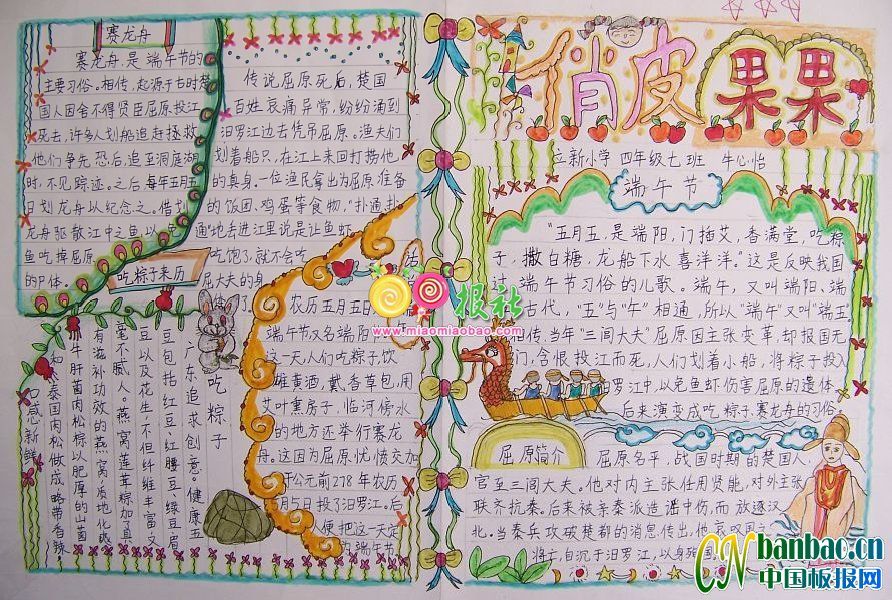 俏皮果果
立新小学 四年级七班 牛心怡
端午节
“五月五,是端阳,门插艾,香满堂,吃粽
子,撒白糖,龙船下水喜洋洋。”这是反映我国
端午节习俗的儿歌。端午,又叫端阳、端
古代,“五”与“午”相通,所以“端午”又叫“端五”
相传,当年“三闾大夫”屈原因主张变革,却报国无
门,含恨投江而死,人们划着小船,将粽子投入
汨罗江中,以免鱼虾伤害屈原的遗体,
后来演变成吃粽子、赛龙舟的习俗。
屈原简介
屈原名平,战国时期的楚国人,
官至三闾大夫。他对内主张任用贤能,对外主张
联齐抗秦。后来被亲秦派造谣中伤,而放逐汉
北。当秦兵攻破楚都的消息传出,他哀叹国
将亡,自沉于汨罗江,以身殉国
赛龙舟
赛龙舟是端午节的
主要习俗。相传,起源于古时楚
国人因舍不得贤臣屈原投江
死去,许多人划船追赶拯救
他们争先恐后追至洞庭湖
时,不见踪迹。之后每年五月五
日划龙舟以纪念之。借划
龙舟驱散江中之鱼,以免
鱼吃掉屈原
的尸体。
吃粽子来历
传说屈原死后,楚国
百姓哀痛异常,纷纷涌到
汨罗江边去凭吊屈原。渔夫们
划着船只,在江上来回打捞他
的真身。一位渔民拿出为屈原准备
的饭团、鸡蛋等食物,“扑通、扑
通”地丢进江里说是让鱼虾
吃饱了,就不会吃
屈大夫的身
体了。
农历五月五日
端午节,又名端阳
这一天,人们吃粽子,饮
雄黄酒,戴香草包,用
艾叶熏房子,临河傍水
的地方还举行赛龙
舟。这因为屈原忧愤交加
于公元前278年农历
月5日投了汨罗江。后
便把这一天定
为端午节
吃粽子
广东追求创意。健康五
豆包括红豆、红腰豆、绿豆、眉
豆以及花生,不但纤维丰富,又
毫不腻人。燕窝莲蓉粽加了具
有滋补功效的燕窝,质地化成
牛肝菌肉松粽以肥厚的山菌
和泰国肉松做成,略带香辣,
口感新鲜
报社
www.miaomiaobao.com
CN banbao.cn
中国板报网